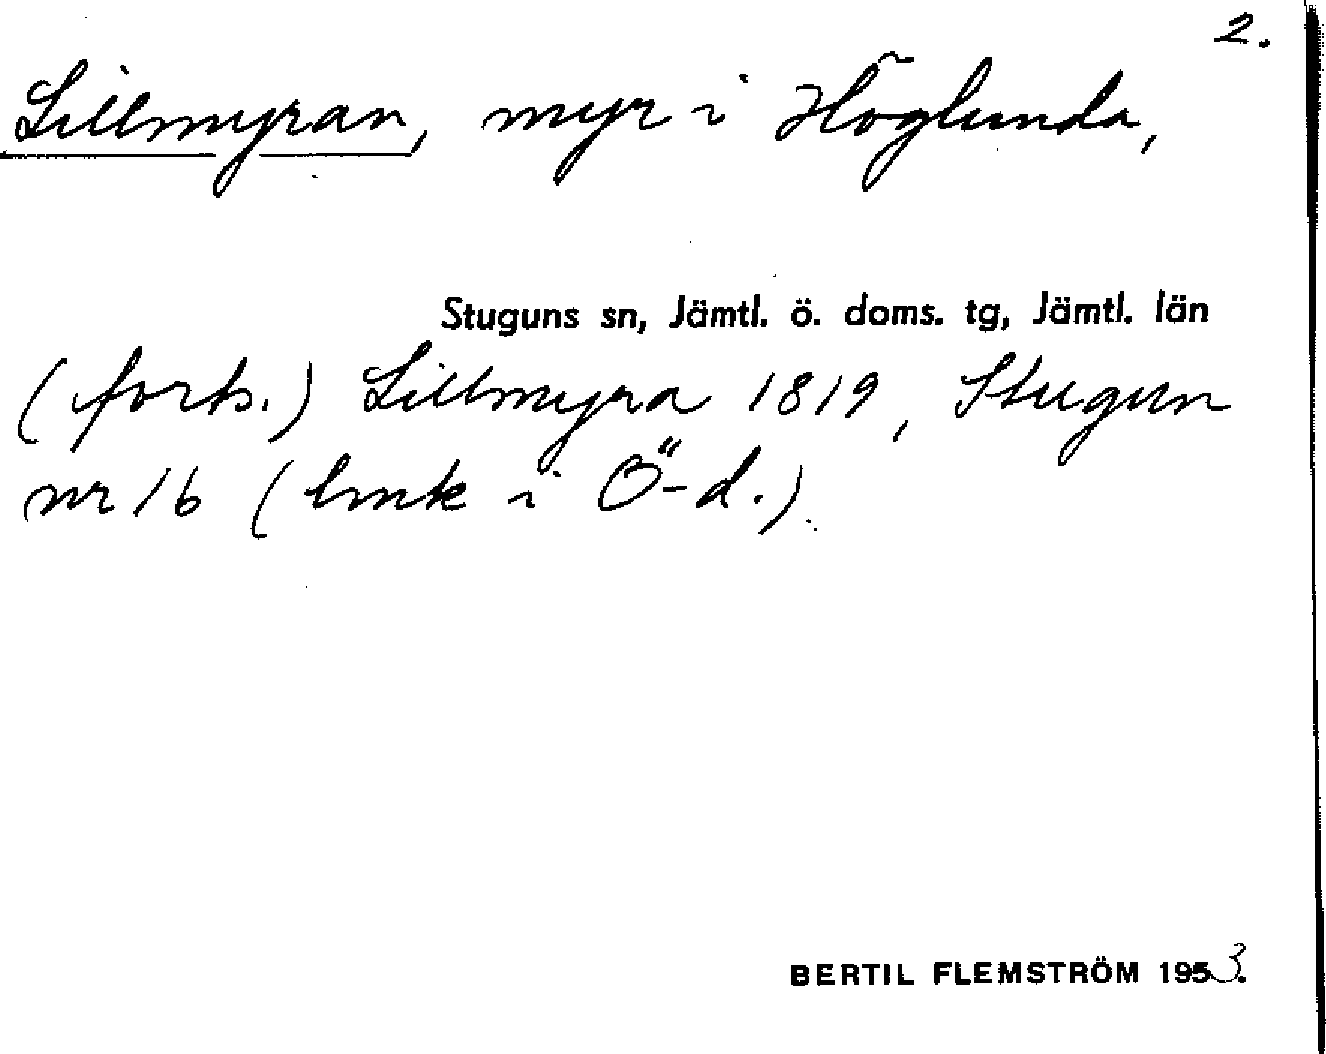 2.
Lillmyran, myr i Höglunda,
Stuguns sn, Jämtl. ö. doms. tg, Jämtl. län
(forts.) Lillmyra 1819, Stugun
nr 16 (lmk i Ö-d.).
BERTIL FLEMSTRÖM 1953.